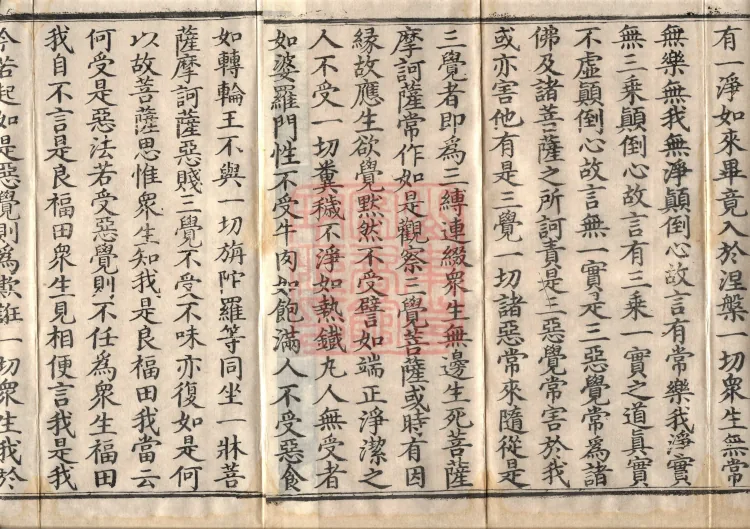 有一淨如來畢竟入於涅槃一切衆生無常
無樂無我無淨顛倒心故言有常樂我淨實
無三乘顛倒心故言有三乘一實之道真實
不虛顛倒心故言無一實是三惡覺常爲諸
佛及諸菩薩之所訶責是三惡覺常害於我
或亦害他有是三覺一切諸惡常來隨從是
三覺者即爲三縛連綴衆生無邊生死菩薩
摩訶薩常作如是觀察三覺菩薩或時有因
緣故應生欲覺黙然不受譬如端正淨潔之
人不受一切糞穢不淨如熱鐵丸人無受者
如婆羅門性不受牛肉如飽滿人不受惡食
如轉輪王不與一切旃陀羅等同坐一牀菩
薩摩訶薩惡賤三覺不受不味亦復如是何
以故菩薩思惟衆生知我是良福田我當云
何受是惡法若受惡覺則不任爲衆生福田
我自不言是良福田衆生見相便言我是我
今若起如是惡覺則爲欺誑一切衆生我於